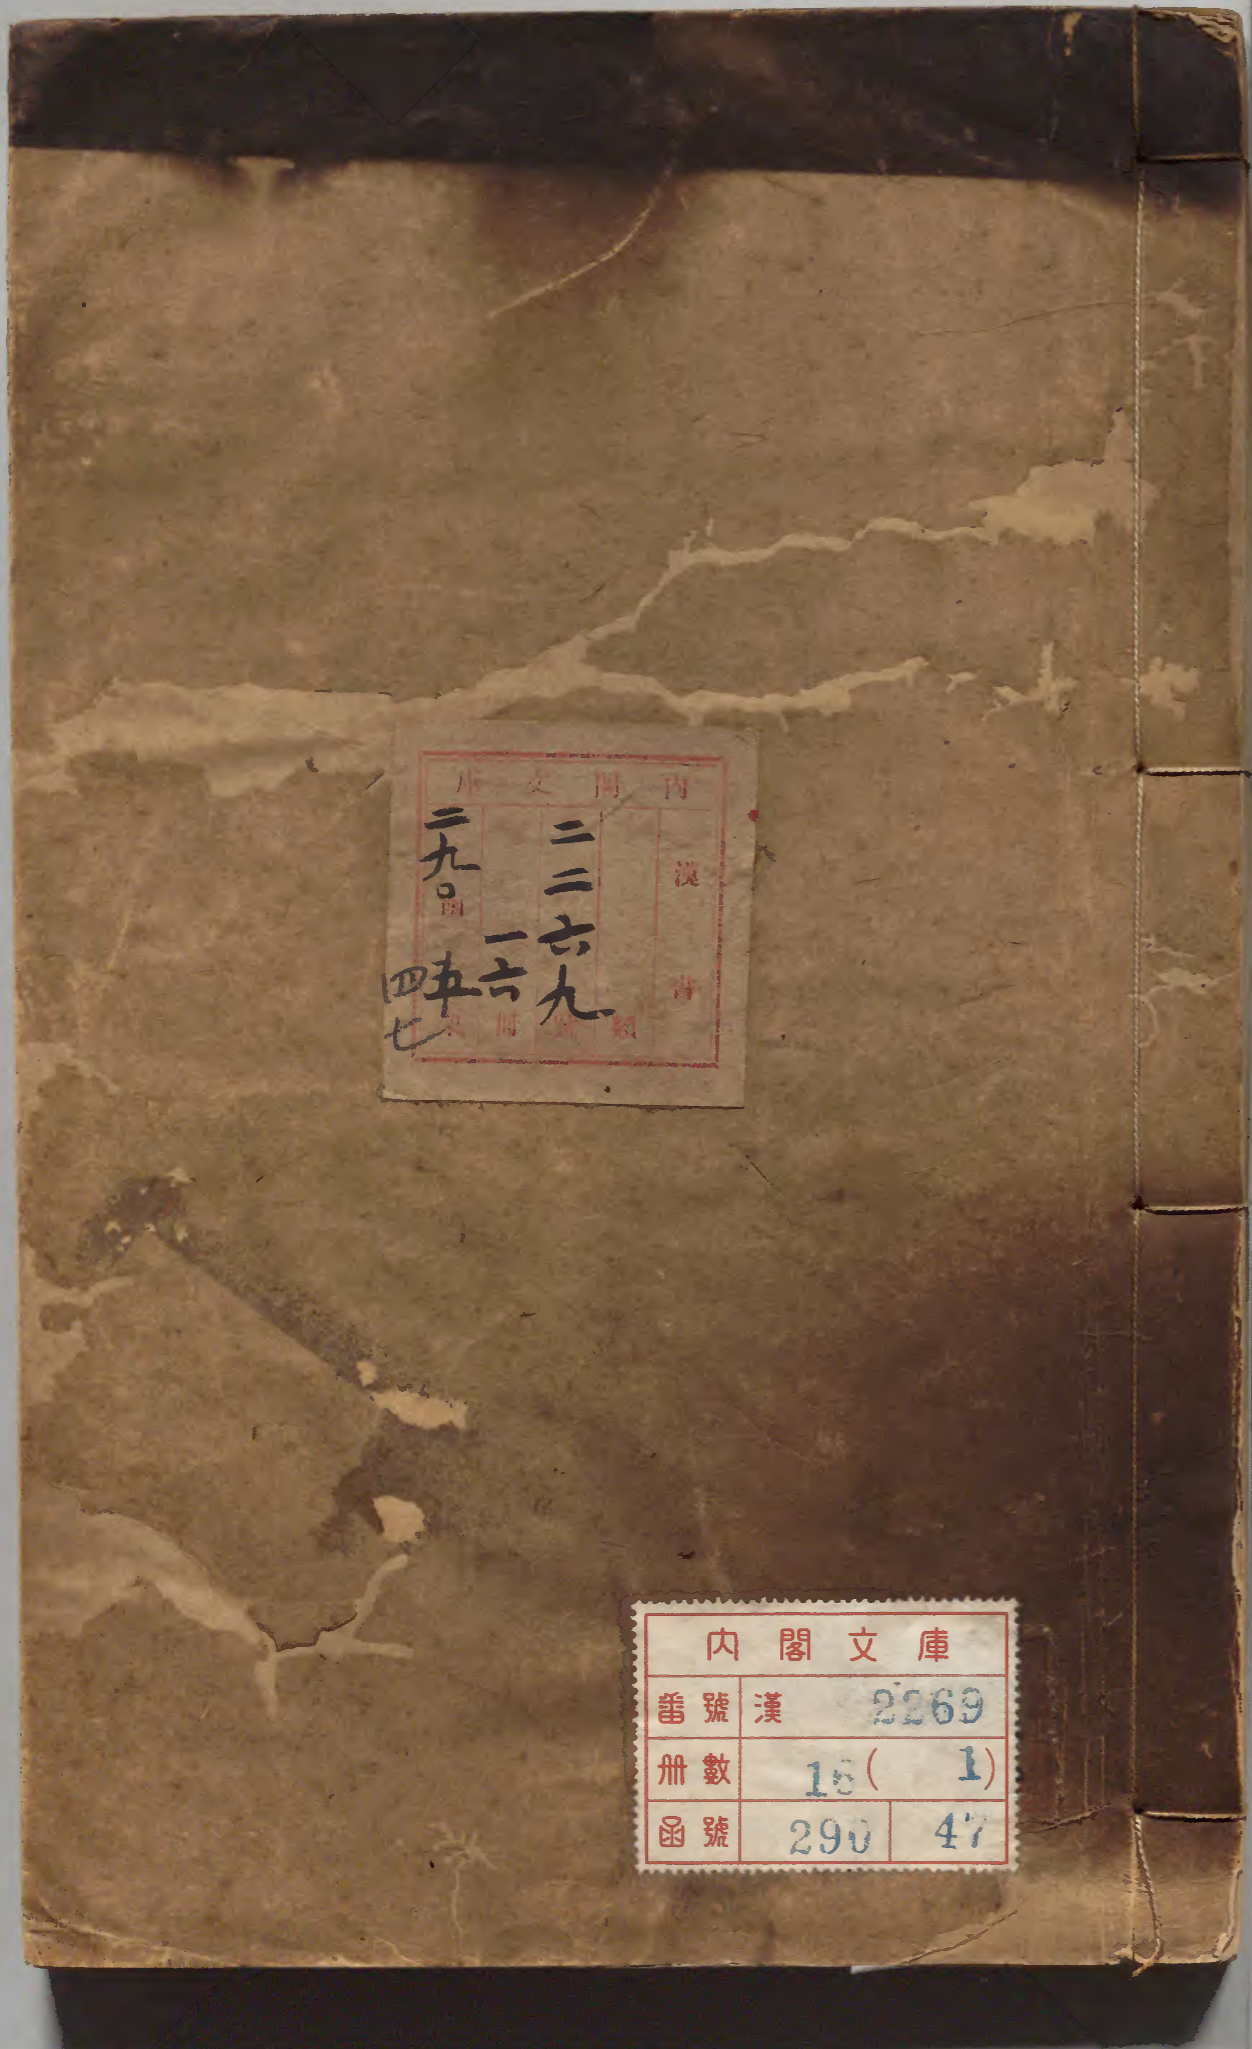 内閣文庫
漢書
類
二二六九號
一六冊
二九〇函
五架
四七
内閣文庫
番號 漢 2269
册數 16(1)
函號 290 47